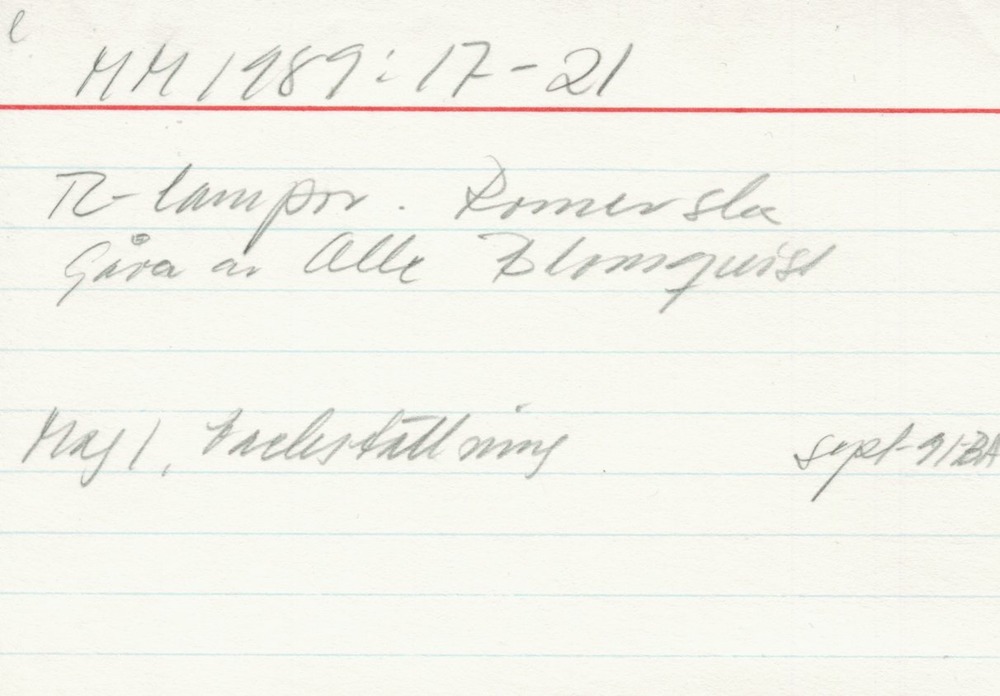 MM 1989:17-21
TC-lampor. Romerska
Gåva av Olle Blomquist
Mag 1, backställning
sept-91 BA